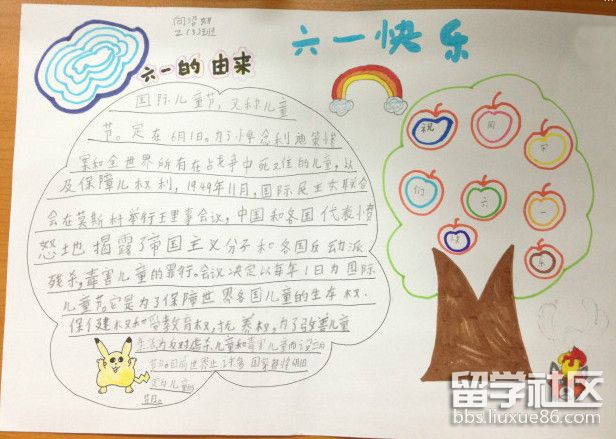 二(3)班
六一快乐
六一的由来
国际儿童节,又称儿童
节。定在6月1日。为了悼念利迪策惨
案和全世界所有在战争中死难的儿童,以
及保障儿权利,1949年11月,国际民主妇联合会
会在莫斯科举行理事会议,中国和各国代表愤
怒地揭露了帝国主义分子和各国反动派
残杀,毒害儿童的罪行。会议决定以每年1日为国际
儿童节。它是为了保障世界各国儿童的生存权.
保健权和受教育权,抚养权,为了改善儿童
生活为反对虐杀儿童和毒害儿童而设立
节日。目前世界上许多国家都将
定为儿童的
节日。
祝 同 学
们 六 一
快 乐
留学社区
bbs.liuxue86.com